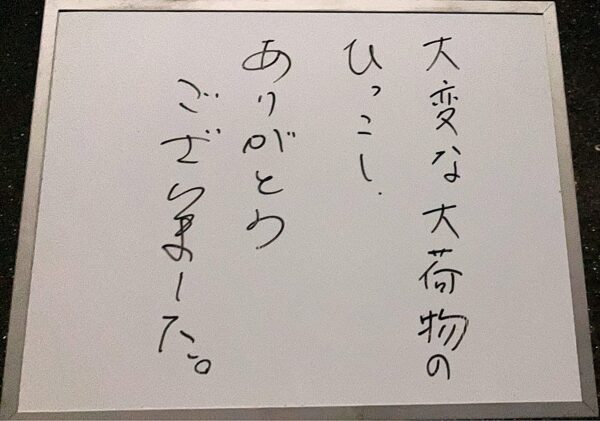 大変な大荷物の
ひっこし
ありがとう
ございました。